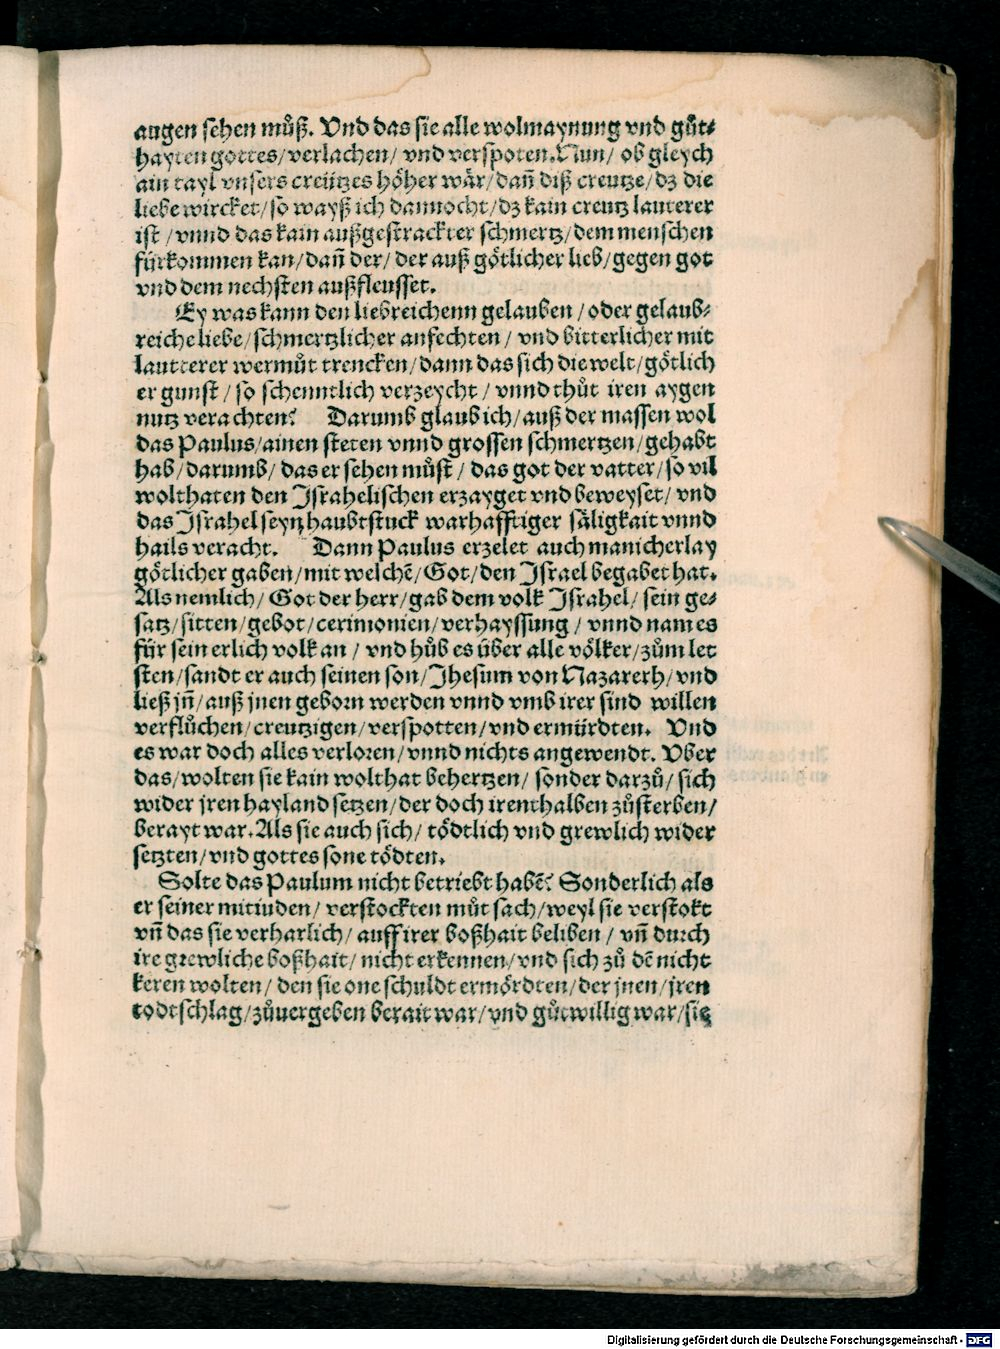 augen sehen můß. Vnd das sie alle wolmaynung vnd gůt⸗
hayten gottes/verlachen/ vnd verspoten. Nun/ ob gleych
ain tayl vnsers creützes höher wär/dañ diß creutze/dz die
liebe wircket/so wayß ich dannocht/dz kain creutz lauterer
ist /vnnd das kain außgestrackter schmertz/dem menschen
fürkommen kan/dañ der/der auß götlicher lieb/gegen got
vnd dem nechsten außfleusset.
Ey was kann den liebreichenn gelauben/oder gelaub⸗
reiche liebe/schmertzlicher anfechten/ vnd bitterlicher mit
lautterer wermůt trencken/dann das sich die welt/götlich
er gunst /so schenntlich verzeycht/vnnd thůt iren aygen
nutz verachten? Darumb glaub ich/auß der massen wol
das Paulus/ainen steten vnnd grossen schmertzen/gehabt
hab/darumb/das er sehen můst/das got der vatter/so vil
wolthaten den Israhelischen erzayget vnd beweyset/vnd
das Israhel seyn haubtstuck warhafftiger säligkait vnnd
hails veracht. Dann Paulus erzelet auch manicherlay
götlicher gaben/mit welchē/Got/den Israel begabet hat.
Als nemlich/Got der herr/gab dem volk Israhel/sein ge⸗
satz/sitten/gebot/cerimonien/verhayssung/vnnd nam es
für sein erlich volk an/vnd hůb es über alle völker/zům let
sten/sandt er auch seinen son/Jhesum von Nazareth/vnd
ließ jñ/auß jnen geborn werden vnnd vmb irer sind willen
verflůchen/creutzigen/verspotten/vnd ermürdten. Vnd
es war doch alles verloren/vnnd nichts angewendt. Vber
das/wolten sie kain wolthat behertzen/sonder darzů/sich
wider jren hayland setzen/der doch irenthalben zůsterben/
berayt war. Als sie auch sich/tödtlich vnd grewlich wider
setzten/vnd gottes sone tödten.
Solte das Paulum nicht betriebt habē? Sonderlich als
er seiner mitiuden/verstockten můt sach/weyl sie verstokt
vñ das sie verharlich/auff irer boßhait beliben/vñ durch
ire grewliche boßhait/nicht erkennen/vnd sich zů dē nicht
keren wolten/den sie one schuldt ermördten/der jnen/jren
todtschlag/zůuergeben berait war/vnd gůtwillig war/sie
Digitalisierung gefördert durch die Deutsche Forschungsgemeinschaft - DFG